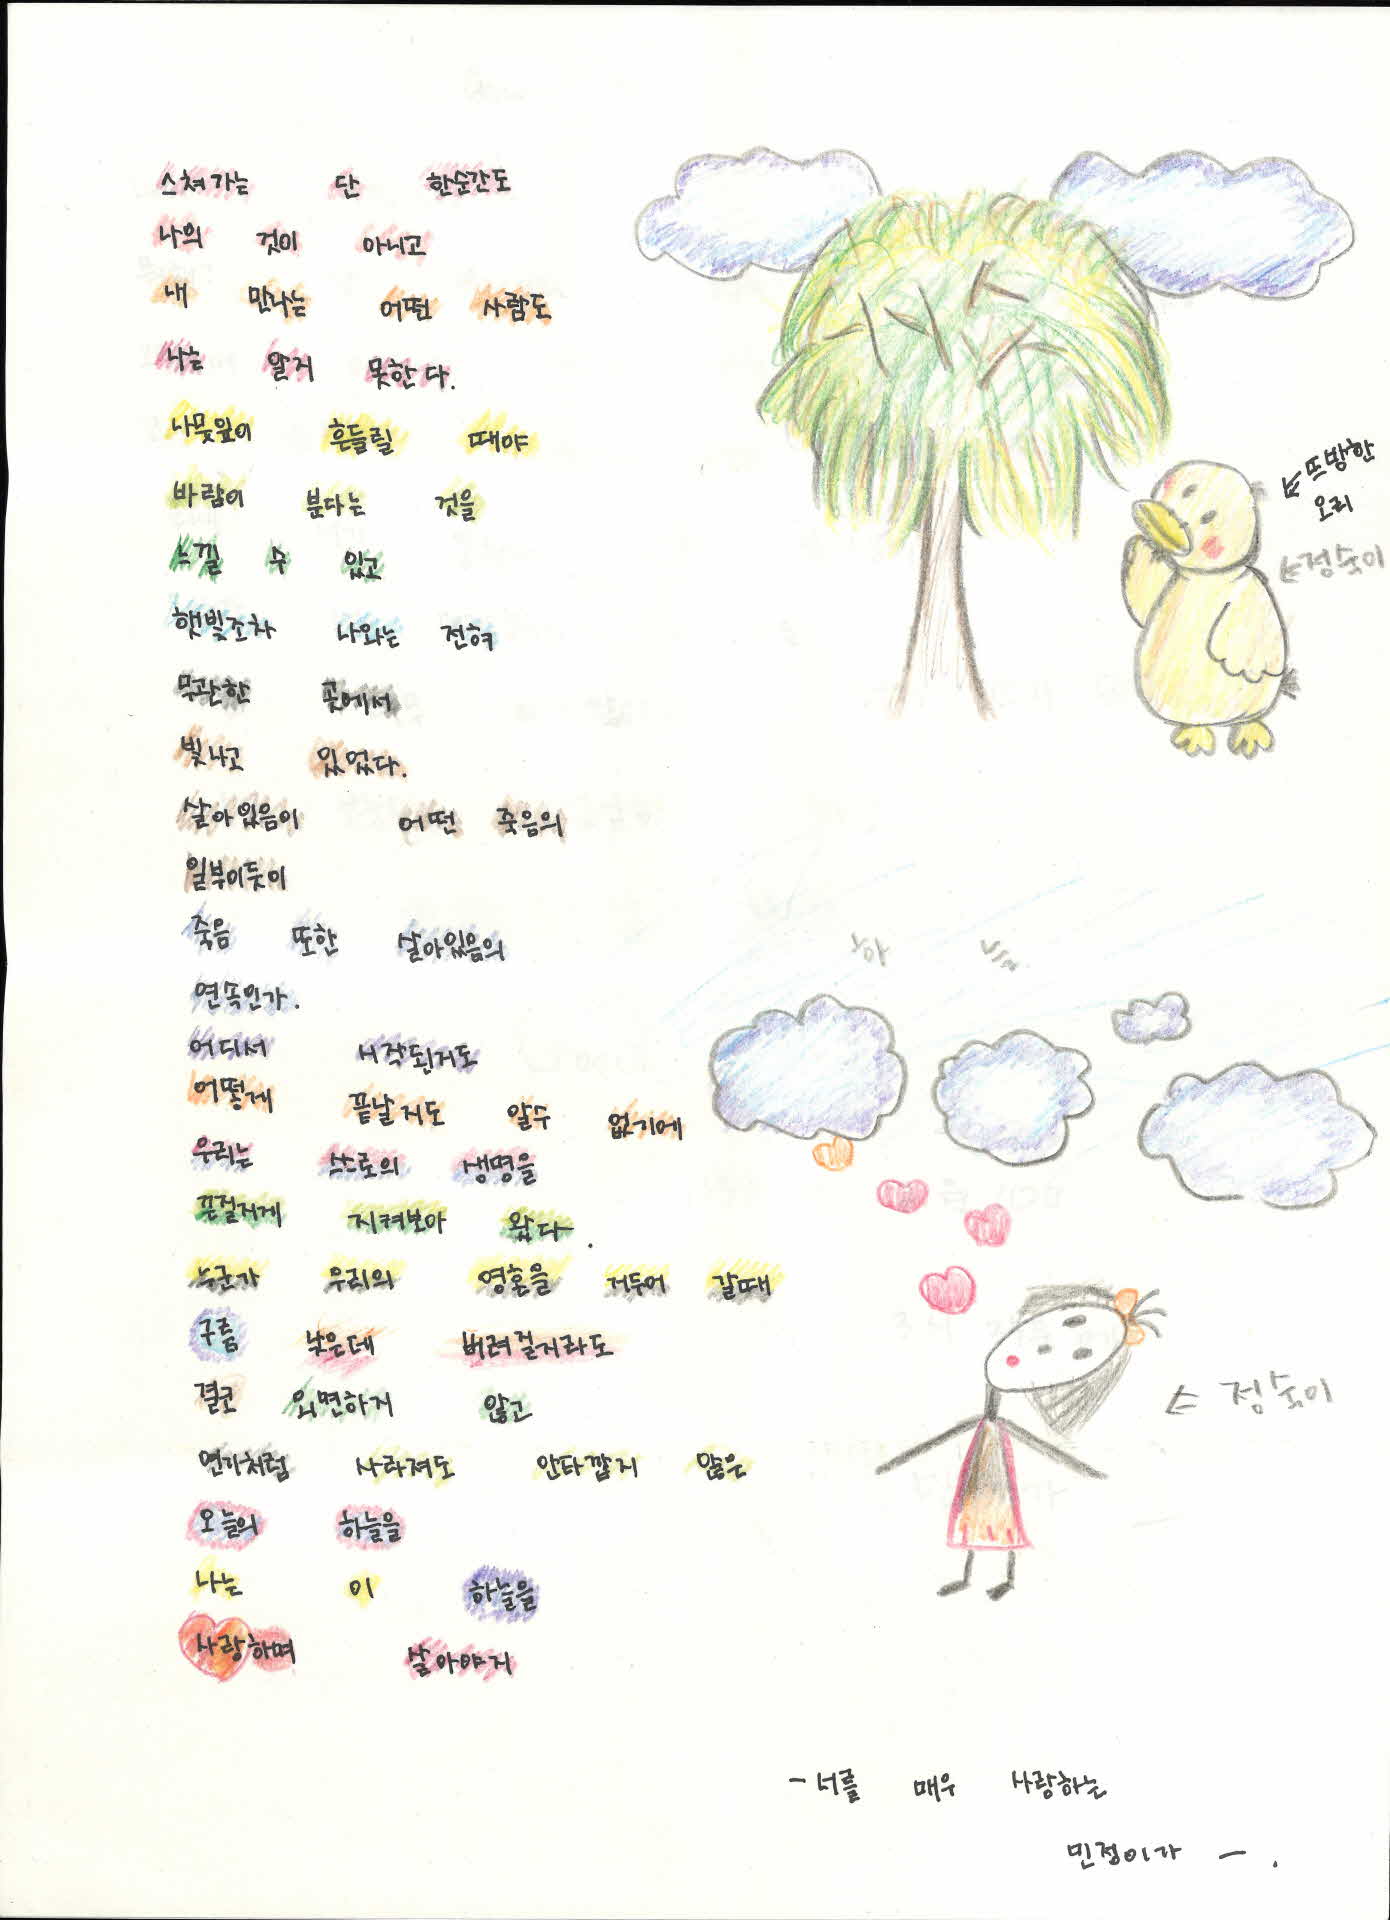 스쳐가는 단 한순간도
나의 것이 아니고
내 만나는 어떤 사람도
나는 알지 못한다.
나뭇잎이 흔들릴 때야
바람이 분다는 것을
느낄 수 있고
햇빛조차 나와는 전혀
무관한 곳에서
빛나고 있었다.
살아있음이 어떤 죽음의
일부이듯이
죽음 또한 살아있음의
연속인가.
어디서 시작된지도
어떻게 끝날지도 알수 없기에
우리는 스스로의 생명을
끈질기게 지켜보아 왔다.
누군가 우리의 영혼을 거두어 갈때
구름 낮은데 버려질지라도
결코 외면하지 않고
연기처럼 사라져도 안타깝지 않은
오늘의 하늘을
나는 이 하늘을
사랑하며 살아야지
뜨방한
오리
정숙이
정숙이
- 너를 매우 사랑하는
민정이가 - .